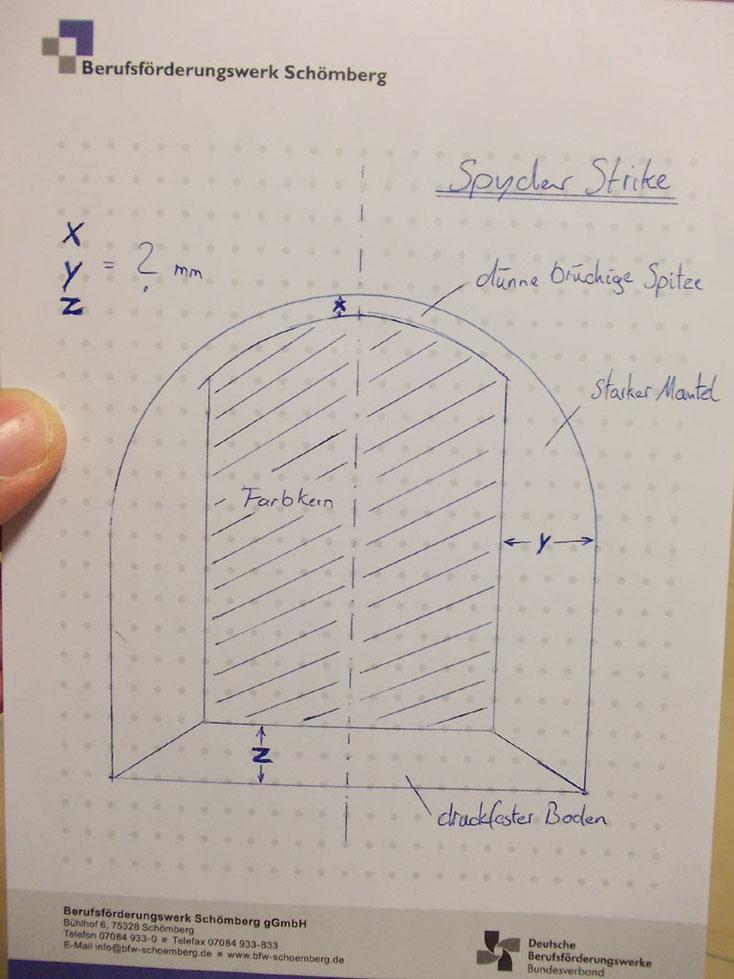 Berufsförderungswerk Schömberg
Spyder Strike
x
y = ? mm
z
dünne brüchige Spitze
x
starker Mantel
Farbkern
y
z
druckfester Boden
Berufsförderungswerk Schömberg gGmbH
Bühlhof 6, 75328 Schömberg
Telefon 07084 933-0 ■ Telefax 07084 933-833
E-Mail info@bfw-schoemberg.de ■ www.bfw-schoemberg.de
Deutsche
Berufsförderungswerke
Bundesverband